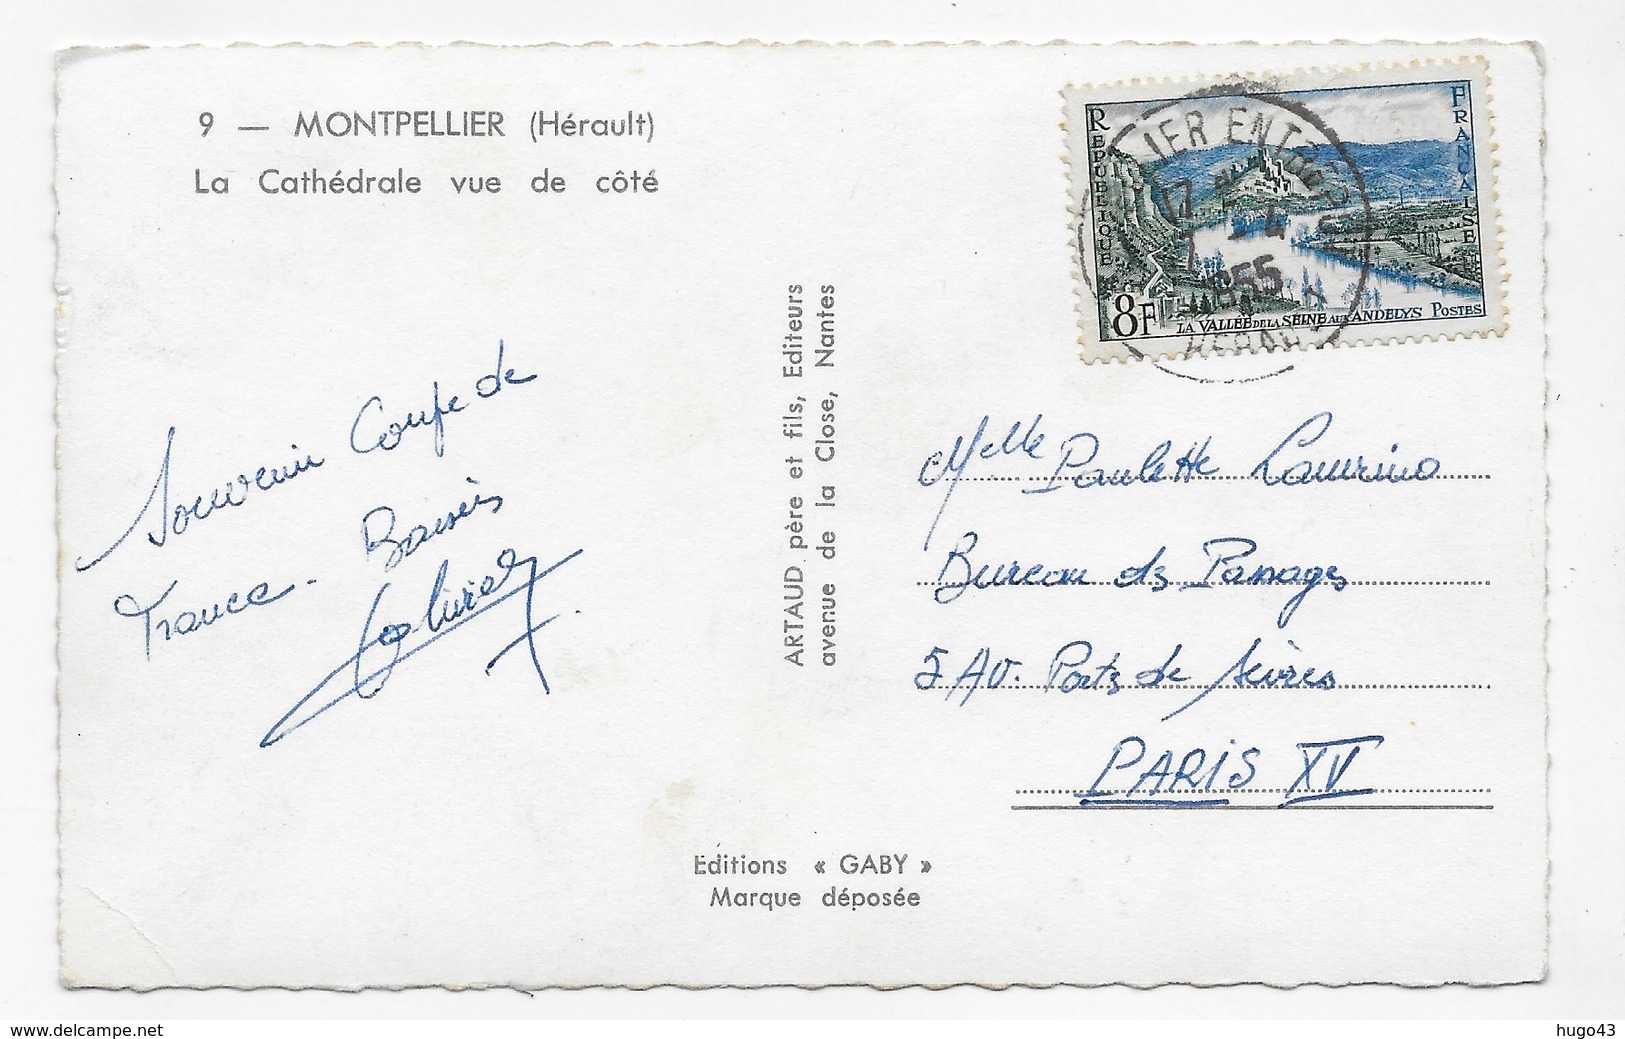 9 — MONTPELLIER (Hérault)
La Cathédrale vue de côté
Souvenir Coupe de
France. Baisers
ARTAUD père et fils, Editeurs
avenue de la Close, Nantes
REPUBLIQUE
FRANÇAISE
8F
LA VALLÉE DE LA SEINE AUX ANDELYS POSTES
LIER ENTREPOT
17 H
7 - 4
1955
HERAULT
Melle Paulette Laurino
Bureau des Passages
5 Av. Porte de Sèvres
PARIS XV
Editions « GABY »
Marque déposée
www.delcampe.net
hugo43